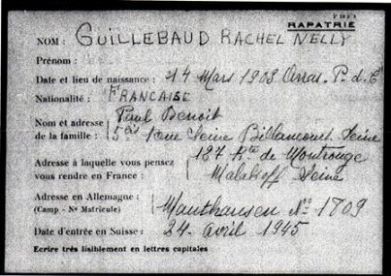 RAPATRIE
NOM : GUILLEBAUD RACHEL NELLY
Prénom :
Date et lieu de naissance : 14 Mars 1908 Arras. P. d. C
Nationalité : FRANCAISE
Nom et adresse de la famille : Paul Benoit
5bis rue Seine Billancourt Seine
Adresse à laquelle vous pensez vous rendre en France : 127 Rte de Montrouge
Malakoff Seine
Adresse en Allemagne : (Camp - No Matricule) Mauthausen No 1709
Date d'entrée en Suisse : 24. Avril 1945
Ecrire très lisiblement en lettres capitales